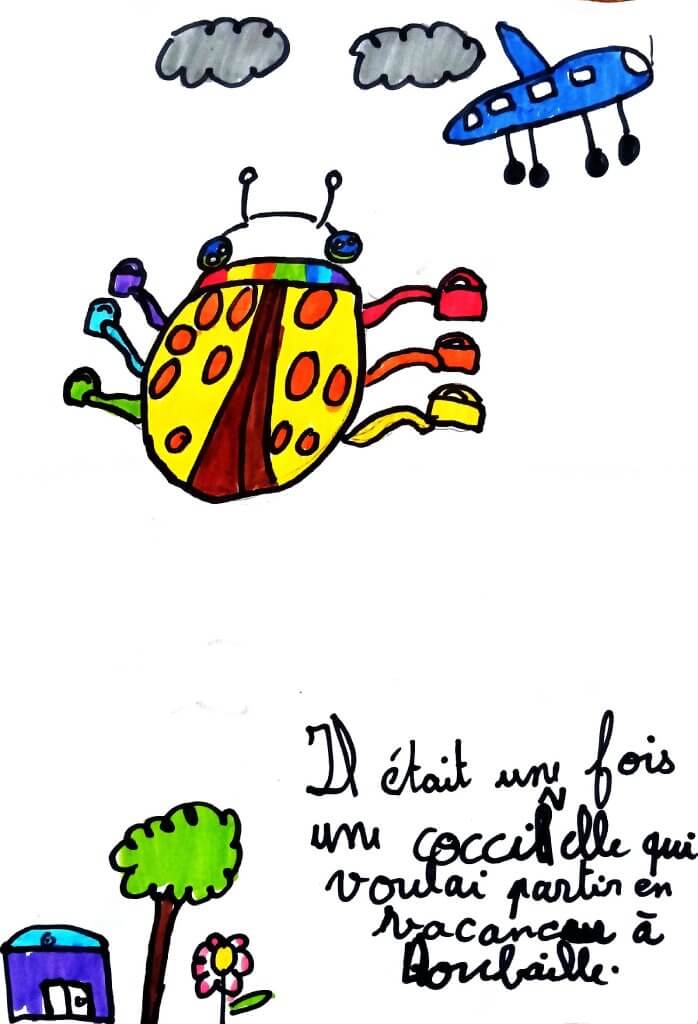 Il était une fois
une coccinelle qui
voulai partir en
vacance à